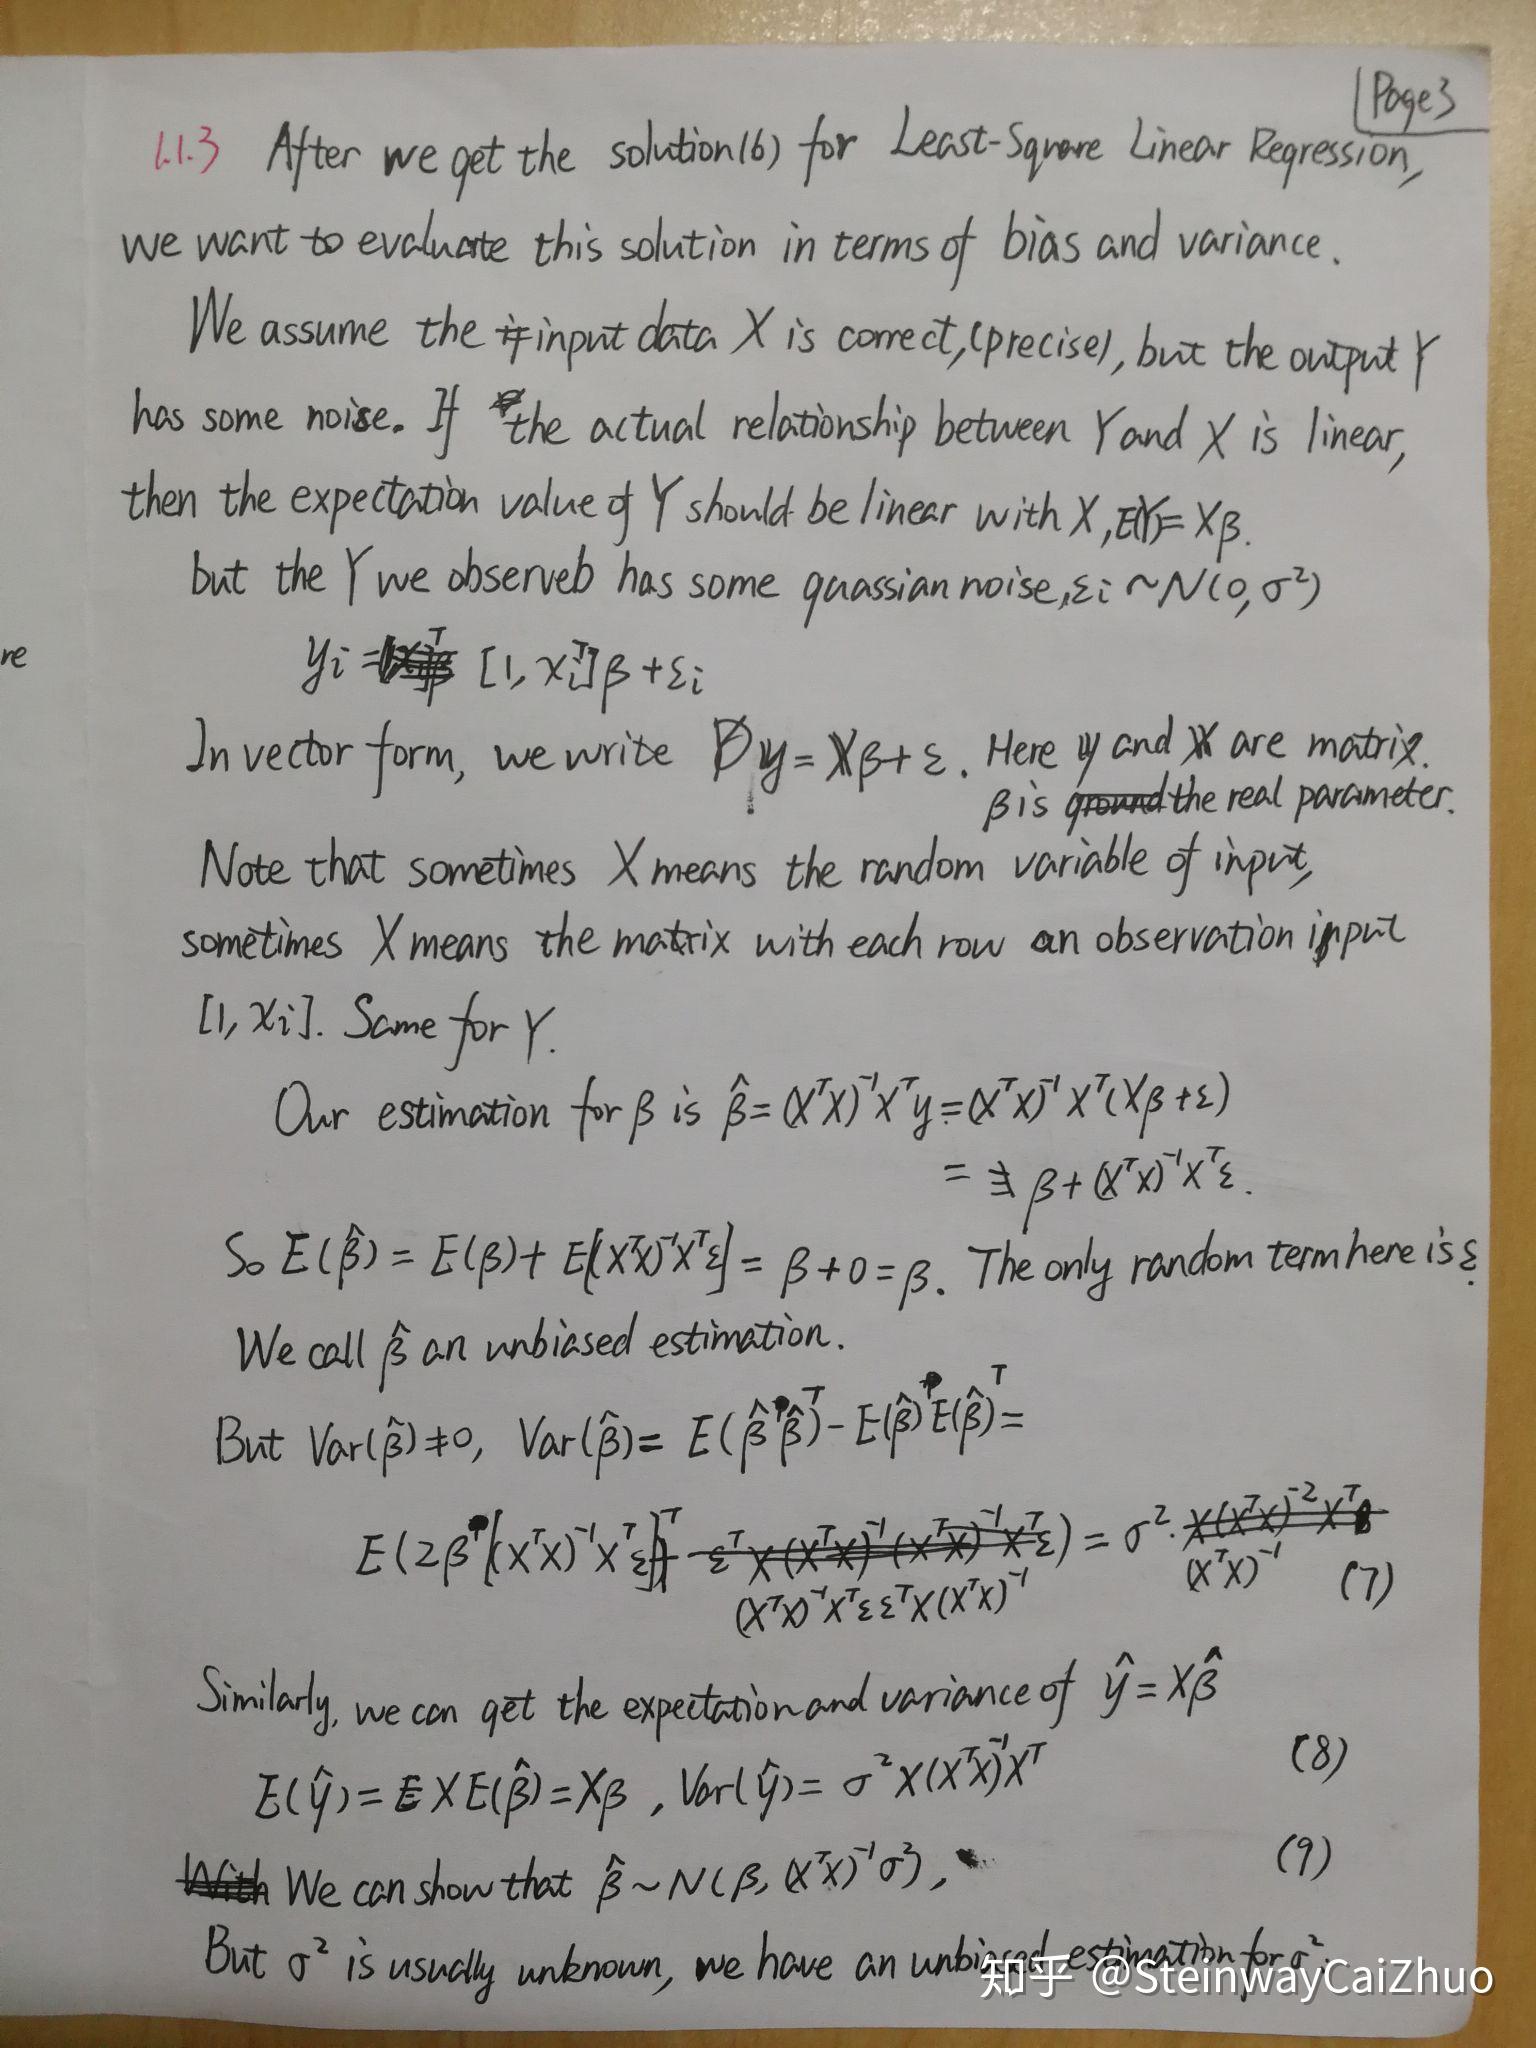 Page3
1.1.3 After we get the solution(6) for Least-Square Linear Regression,
we want to evaluate this solution in terms of bias and variance.
We assume the input data X is correct,(precise), but the output Y
has some noise. If the actual relationship between Y and X is linear,
then the expectation value of Y should be linear with X, E(Y)= Xβ.
but the Y we observeb has some quassian noise, εi ~N(0, σ²)
re
yi = [1, xiᵀ]β + εi
In vector form, we write y = Xβ + ε. Here y and X are matrix.
β is the real parameter.
Note that sometimes X means the random variable of input,
sometimes X means the matrix with each row an observation input
[1, xi]. Same for Y.
Our estimation for β is β̂ = (XᵀX)⁻¹Xᵀy = (XᵀX)⁻¹Xᵀ(Xβ + ε)
= β + (XᵀX)⁻¹Xᵀε.
So E(β̂) = E(β) + E[(XᵀX)⁻¹Xᵀε] = β + 0 = β. The only random term here is ε.
We call β̂ an unbiased estimation.
But Var(β̂) ≠ 0, Var(β̂) = E(β̂β̂ᵀ) - E(β̂)E(β̂)ᵀ =
E(2β[(XᵀX)⁻¹Xᵀε]ᵀ + ) = σ²·
(XᵀX)⁻¹XᵀεεᵀX(XᵀX)⁻¹ (XᵀX)⁻¹ (7)
Similarly, we can get the expectation and variance of ŷ = Xβ̂
E(ŷ) = XE(β̂) = Xβ , Var(ŷ) = σ²X(XᵀX)⁻¹Xᵀ (8)
We can show that β̂ ~ N(β, (XᵀX)⁻¹σ²), (9)
But σ² is usually unknown, we have an unbiased estimation for σ²:
知乎 @SteinwayCaiZhuo